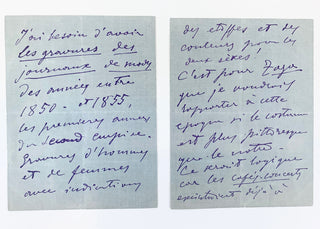 J'ai besoin d'avoir
les gravures des
journaux de modes
des années entre
1850 et 1855,
les premières années
du second empire.
Gravures d'hommes
et de femmes
avec indications
des etoffes et des
couleurs pour les
deux sexes!
C'est pour Zaza
que je voudrais
rapporter à cette
epoque si le costume
est plus pittoresque
que le notre.
Ce serait logique
car les cafés-concerts
existaient déjà à